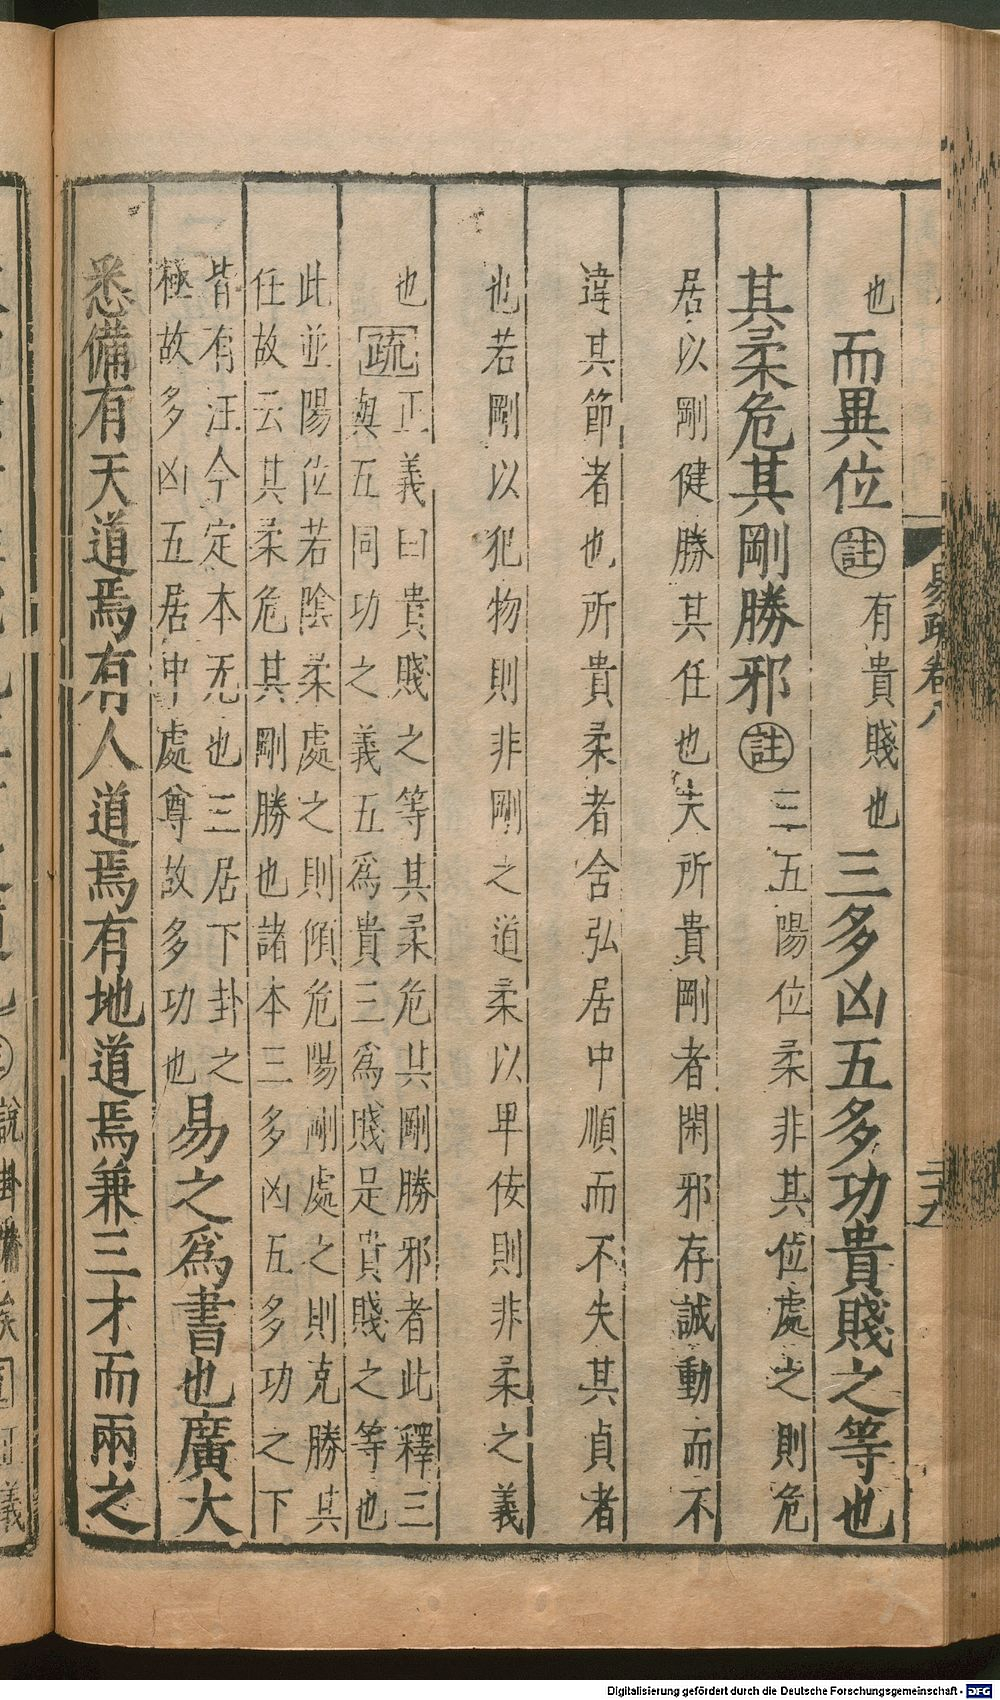 易疏卷八
二十九
也而異位註有貴賤也三多凶五多功貴賤之等也
其柔危其剛勝邪註三五陽位柔非其位處之則危
居以剛健勝其任也夫所貴剛者閑邪存誠動而不
違其節者也所貴柔者含弘居中順而不失其貞者
也若剛以犯物則非剛之道柔以卑佞則非柔之義
也疏正義曰貴賤之等其柔危其剛勝邪者此釋三
與五同功之義五爲貴三爲賤是貴賤之等也
此並陽位若陰柔處之則傾危陽剛處之則克勝其
任故云其柔危其剛勝也諸本三多凶五多功之下
皆有注今定本无也三居下卦之
極故多凶五居中處尊故多功也易之爲書也廣大
悉備有天道焉有人道焉有地道焉兼三才而兩之
說卦
義
Digitalisierung gefördert durch die Deutsche Forschungsgemeinschaft - DFG